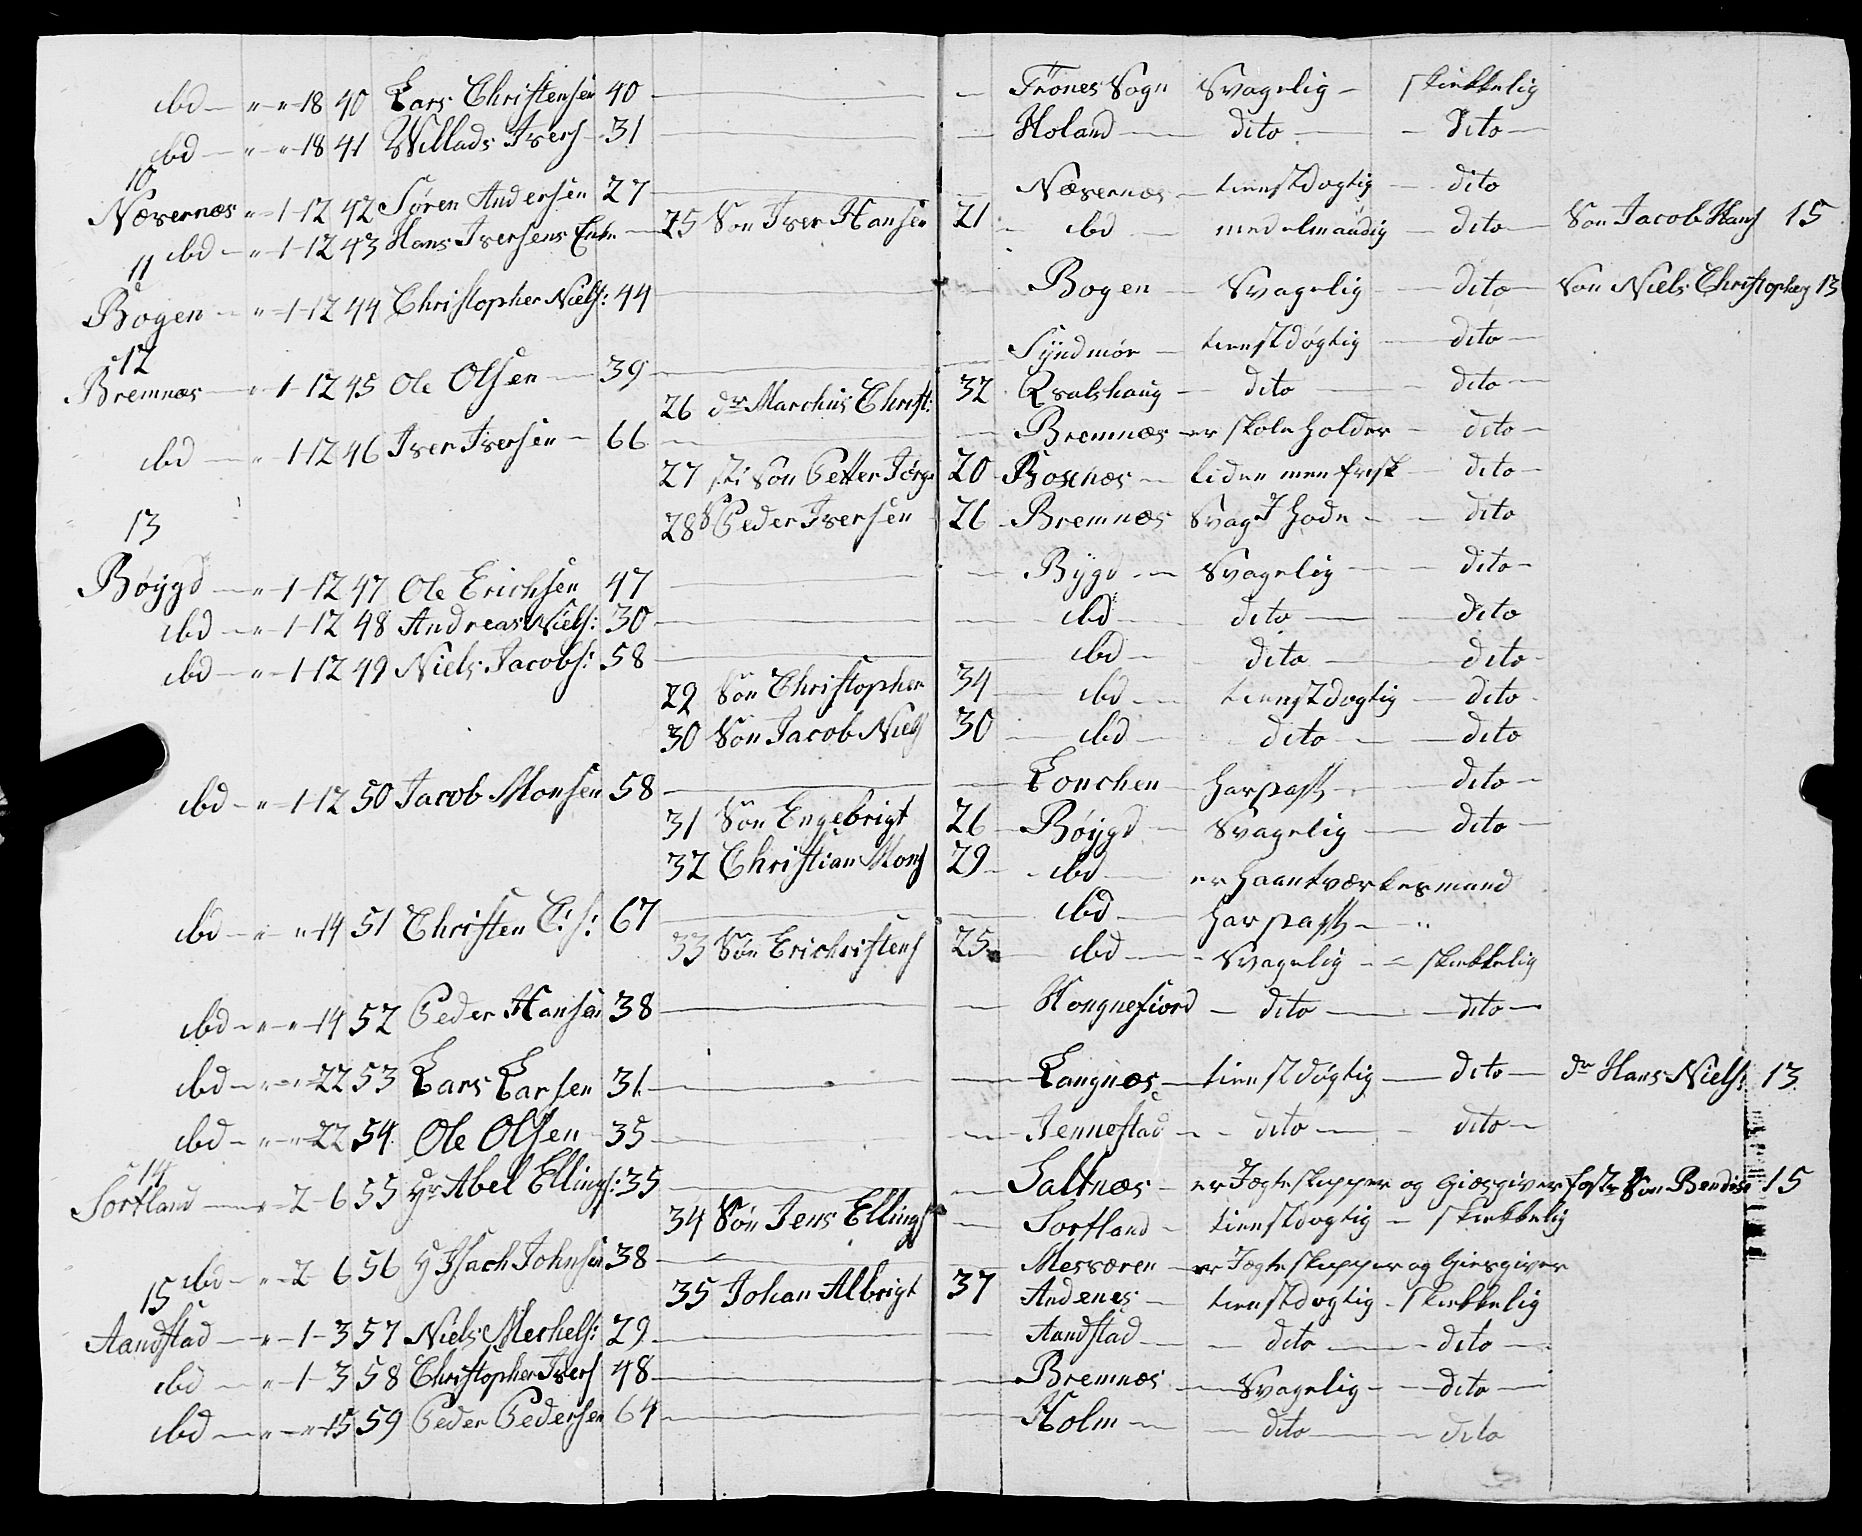 ibd — " " 18 40 Lars Christensen 40 — — Trones Sogn Svagelig — skikkelig
ibd — " " 18 41 Willads Ivers 31 — — Holand — dito — dito —
10
Næsvernæs " 1 - 12 42 Søren Andersen 27 — — Næsvernæs — tienstdygtig — dito
ibd — " 1 - 12 43 Hans Iversens Enke — 25 Søn Iver Hansen 21 — ibd — medelmaadig — dito — Søn Jacob Hans 15
11
Bogen — " 1 - 12 44 Christopher Niels: 44 — — Bogen — Svagelig — dito — Søn Niels Christophers 13
12
Bremnæs — " 1 - 12 45 Ole Olsen — 39 — — Syndmør — tienstdøgtig — dito —
26 dr Marchus Christ: 32 Qvalshaug — dito — dito —
ibd — " 1 - 12 46 Iver Iversen — 66 — — Bremnæs — er skoleholder — dito —
27 sti Søn Petter Jørg 20 Boxnæs — liden men frisk — dito —
28 S Peder Iversen 26 Bremnæs Svag I Hode — dito
13
Bøygd — " 1 - 12 47 Ole Erichsen 47 — — Bygd — Svagelig — dito —
ibd — " 1 - 12 48 Andreas Niels: 30 — — ibd — dito — dito
ibd — " 1 - 12 49 Niels Jacobs: 58 — — ibd — dito — dito
29 Søn Christopher 34 — ibd — tienstdogtig — dito
30 Søn Jacob Niels 30 — ibd — dito — dito
ibd — " 1 - 12 50 Jacob Monsen 58 — — Lonchen — har pass — dito —
31 Søn Engebrigt 26 — Bøygd — Svagelig — dito —
32 Christian Mons 29 — ibd — er Haantværkesmand
ibd — " " 14 51 Christen C: s: 67 — — ibd — har pass — "
33 Søn Erichristens 25 — ibd — Svagelig — skikkelig
ibd — " " 14 52 Peder Hansen 38 — — Hongnefiord — dito — dito —
ibd — " " 22 53 Lars Larsen 31 — — Langnæs — tienstdøgtig — dito — dr Hans Niels: 13
ibd — " " 22 54 Ole Olsen — 35 — — Jennestad — dito — dito —
14
Sortland — " 2 - 6 55 Hr Abel Ellings: 35 — — Saltnæs — er Jægteskipper og Giæsgiver foster Søn Bendix 15
34 Søn Jens Ellings — Sortland — tienstdogtig — skikkelig
ibd — " 2 6 56 H Isach Johnsen 38 — — Mesværen — er Jægteskipper og Giesgiver
35 Johan Albrigt 37 Andenes — tienstdogtig — skikkelig
15
Aandstad — " 1 - 3 57 Niels Michels: 29 — — Aandstad — dito — dito —
ibd — " 1 - 3 58 Christopher Ivers 48 — — Bremnæs — Svagelig — dito —
ibd — " " 15 59 Peder Pedersen 64 — — Holm — dito — dito